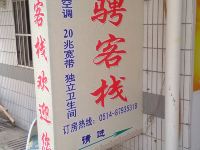 骋客栈
空调 20兆宽带 独立卫生间
订房热线：0514-87625318
请进
客栈欢迎您